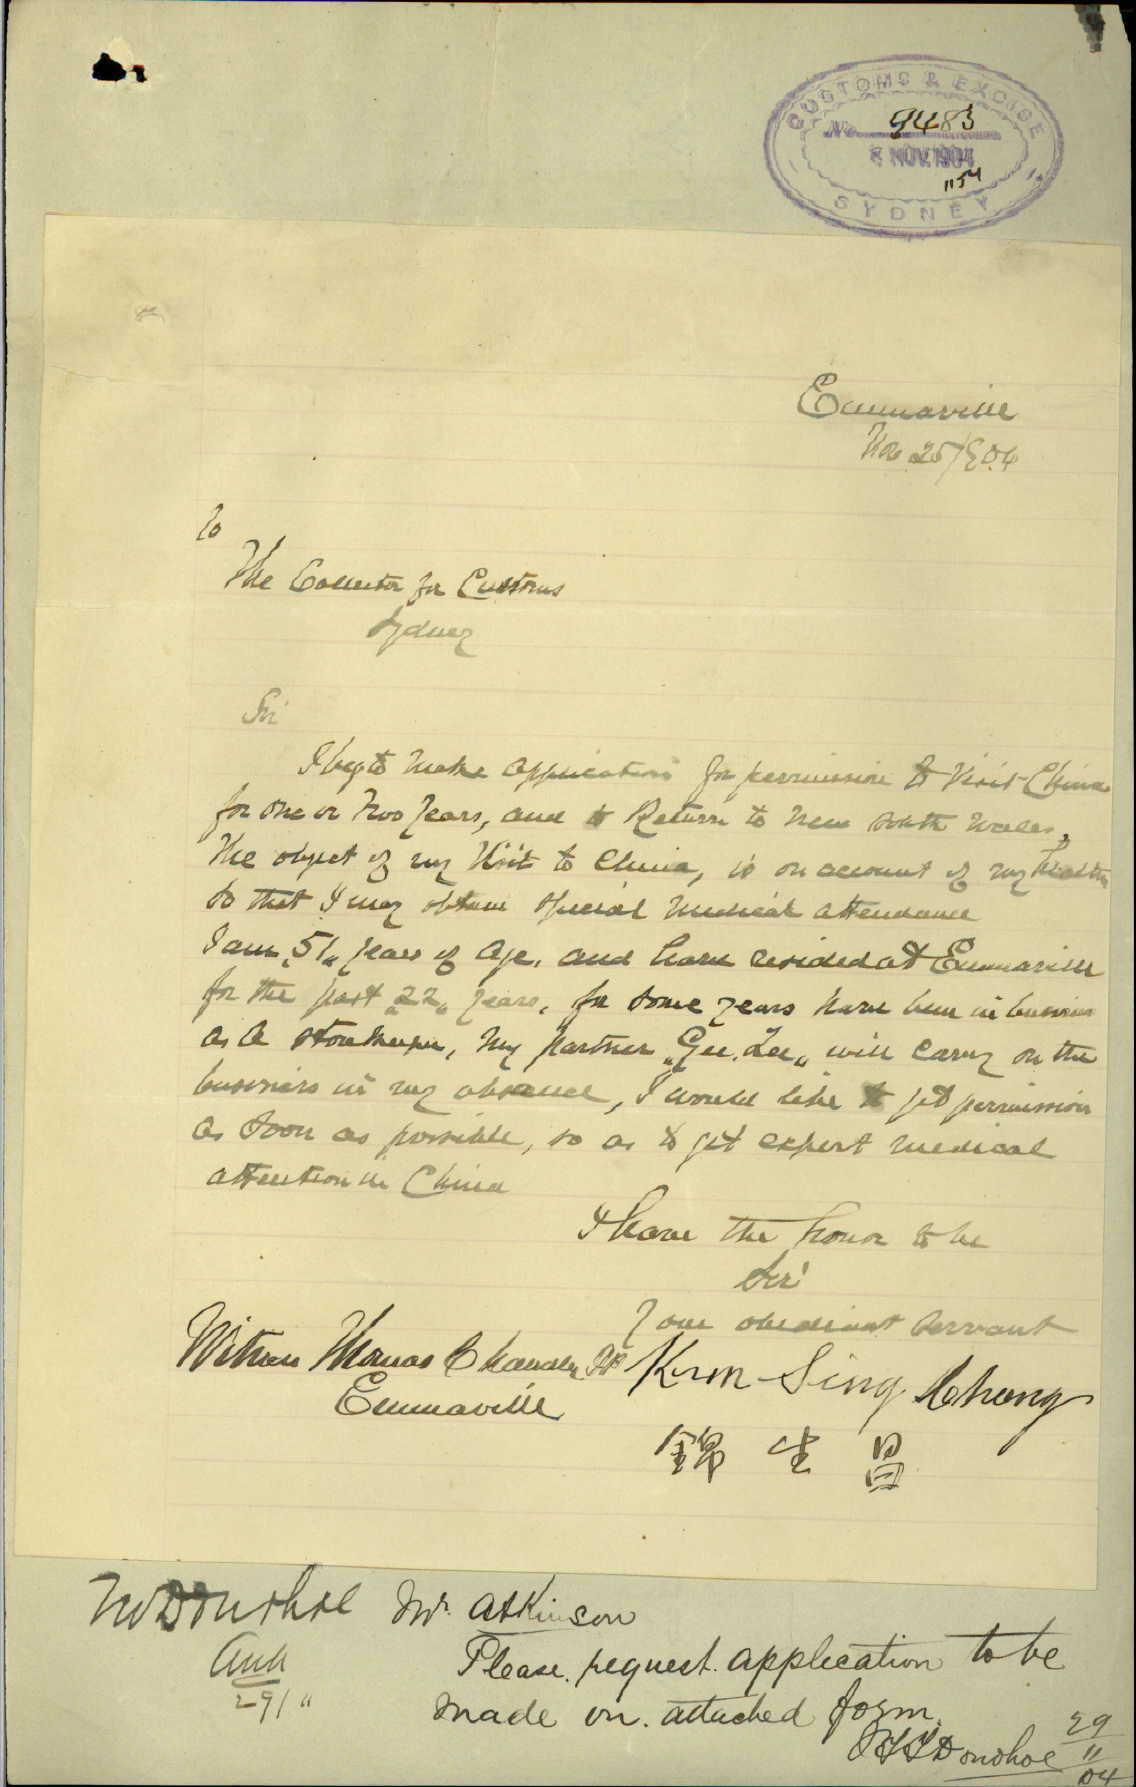 CUSTOMS & EXCISE
No. 9483
NOV. 1904
SYDNEY
Emmaville
Nov 25/904
To
The Collector for Customs
Sydney
Sir
I beg to make application for permission to Visit China
for one or two years, and to Return to New South Wales,
The object of my Visit to China, is on account of my Health
so that I may obtain special medical attendance
I am „51„ years of age, and have resided at Emmaville
for the past „22„ years, for some years have been in business
as a storekeeper, my partner „Gee Lee„ will carry on the
business in my absence, I would like to get permission
as soon as possible, so as to get expert medical
attention in China
I have the honor to be
Sir
Your obedient servant
Witness Thomas Chandler JP Kum Sing Chong
Emmaville
錦 生 昌
Mr Donohoe Mr. Atkinson
29/11 Please request application to be
made on attached form.
Donohoe 29/11/04